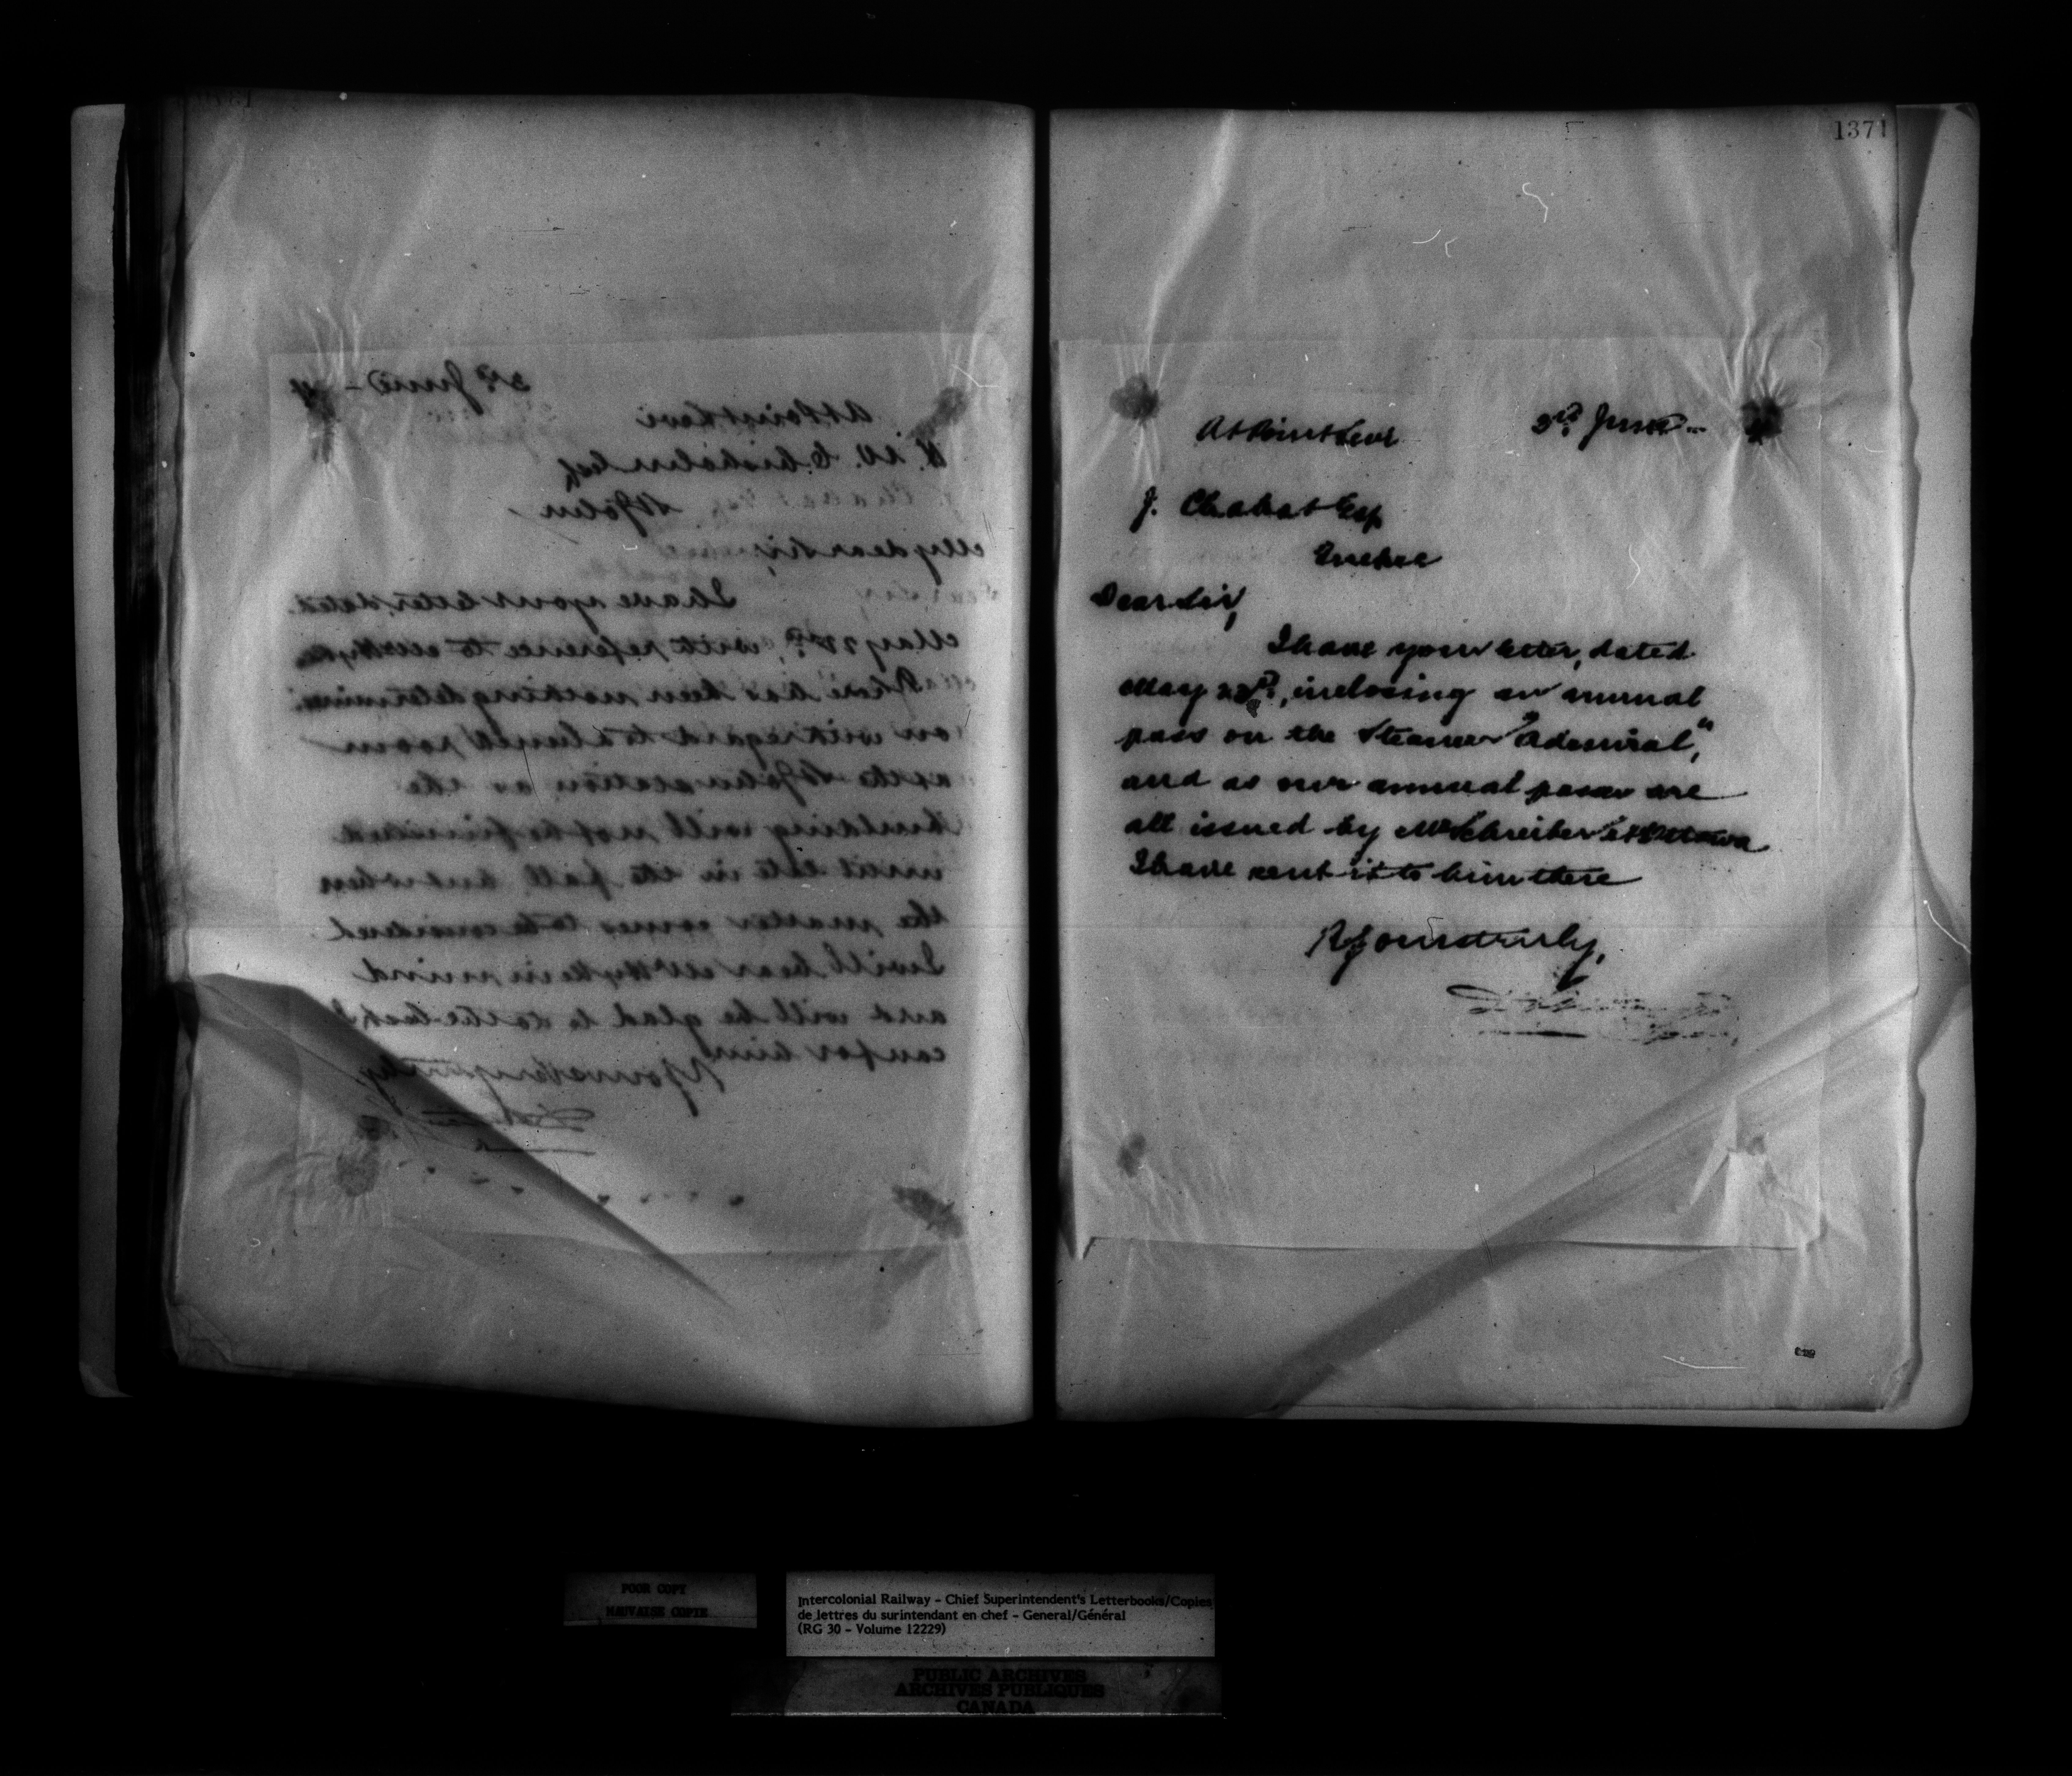 3rd June -
At Point Levi
W. Chisholm Esq
St John
My dear Sir,
I have your letter, dated
May, with reference to
there has been nothing determined
on with regard to a lunch room
at the St John station as the
building will not be finished
until late in the fall but when
the matter comes to be considered
I will bear in mind
and will be glad to do the best I
can for him
Yours very truly,
1371
At Point Levi 3rd June -
J. Chabot Esq
Quebec
Dear Sir,
I have your letter, dated
May, inclosing an annual
pass on the Steamer "Admiral,"
and as our annual passes are
all issued by Mr Schreiber at Ottawa
I have sent it to him there
Yours truly,
POOR COPY
MAUVAISE COPIE
Intercolonial Railway - Chief Superintendent's Letterbooks/Copies
de lettres du surintendant en chef - General/Général
(RG 30 - Volume 12229)
PUBLIC ARCHIVES
ARCHIVES PUBLIQUES
CANADA